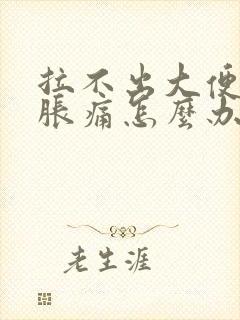 拉不出大便
脹痛怎麼办
老生涯